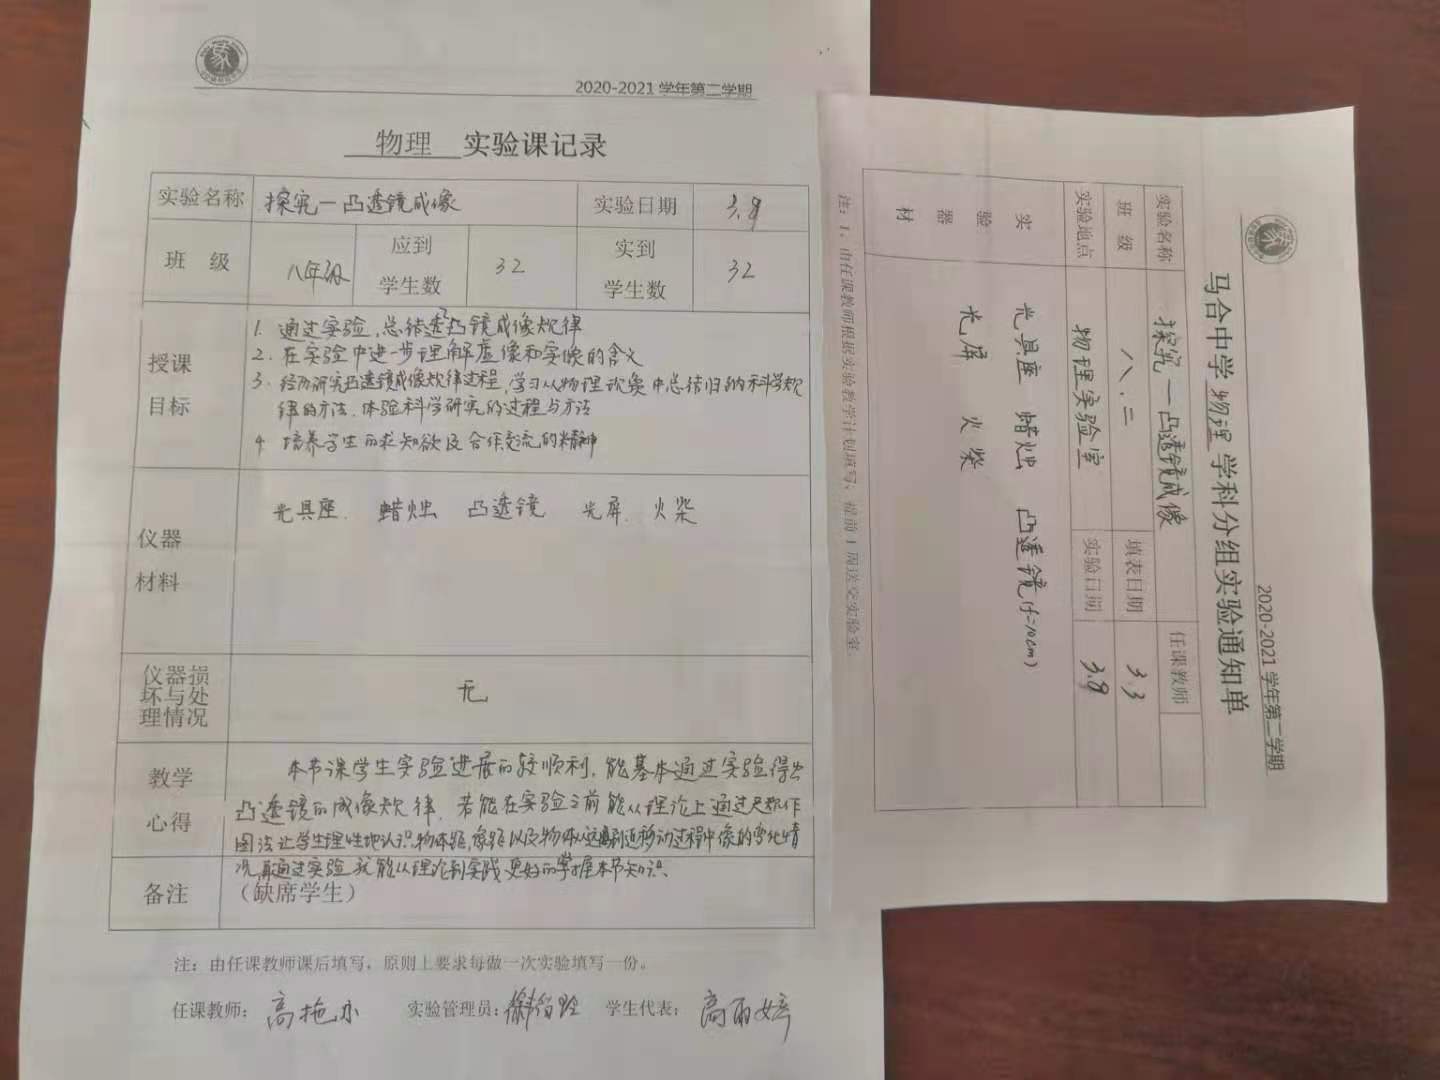 2020-2021 学年第二学期
物理 实验课记录
实验名称 探究一凸透镜成像 实验日期 3.9
班 级 八年级 应到学生数 32 实到学生数 32
授课目标
1. 通过实验,总结透凸镜成像规律
2. 在实验中进一步理解虚像和实像的含义
3. 经历研究凸透镜成像规律过程,学习从物理现象中总结归纳科学规
律的方法.体验科学研究的过程与方法
4. 培养学生的求知欲及合作交流的精神
仪器材料
光具座. 蜡烛 凸透镜 光屏. 火柴
仪器损坏与处理情况 无
教学心得
本节课学生实验进展的较顺利,能基本通过实验得出
凸透镜的成像规律.若能在实验之前能从理论上通过尺规作
图法让学生理性地认识物体距,像距以及物体从远到近移动过程中像的变化情
况,再通过实验就能从理论到实践更好的掌握本节知识.
备注 (缺席学生)
注:由任课教师课后填写,原则上要求每做一次实验填写一份。
任课教师: 实验管理员: 学生代表: 高雨婷
2020-2021 学年第二学期
马合中学 物理 学科分组实验通知单
实验名称 探究一凸透镜成像 任课教师
班 级 八、二 填表日期 3.3
实验地点 物理实验室 实验日期 3.9
实验器材
光具座 蜡烛 凸透镜(f=10cm)
光屏 火柴
注:1、由任课教师根据实验教学计划填写,提前1周送交实验室.